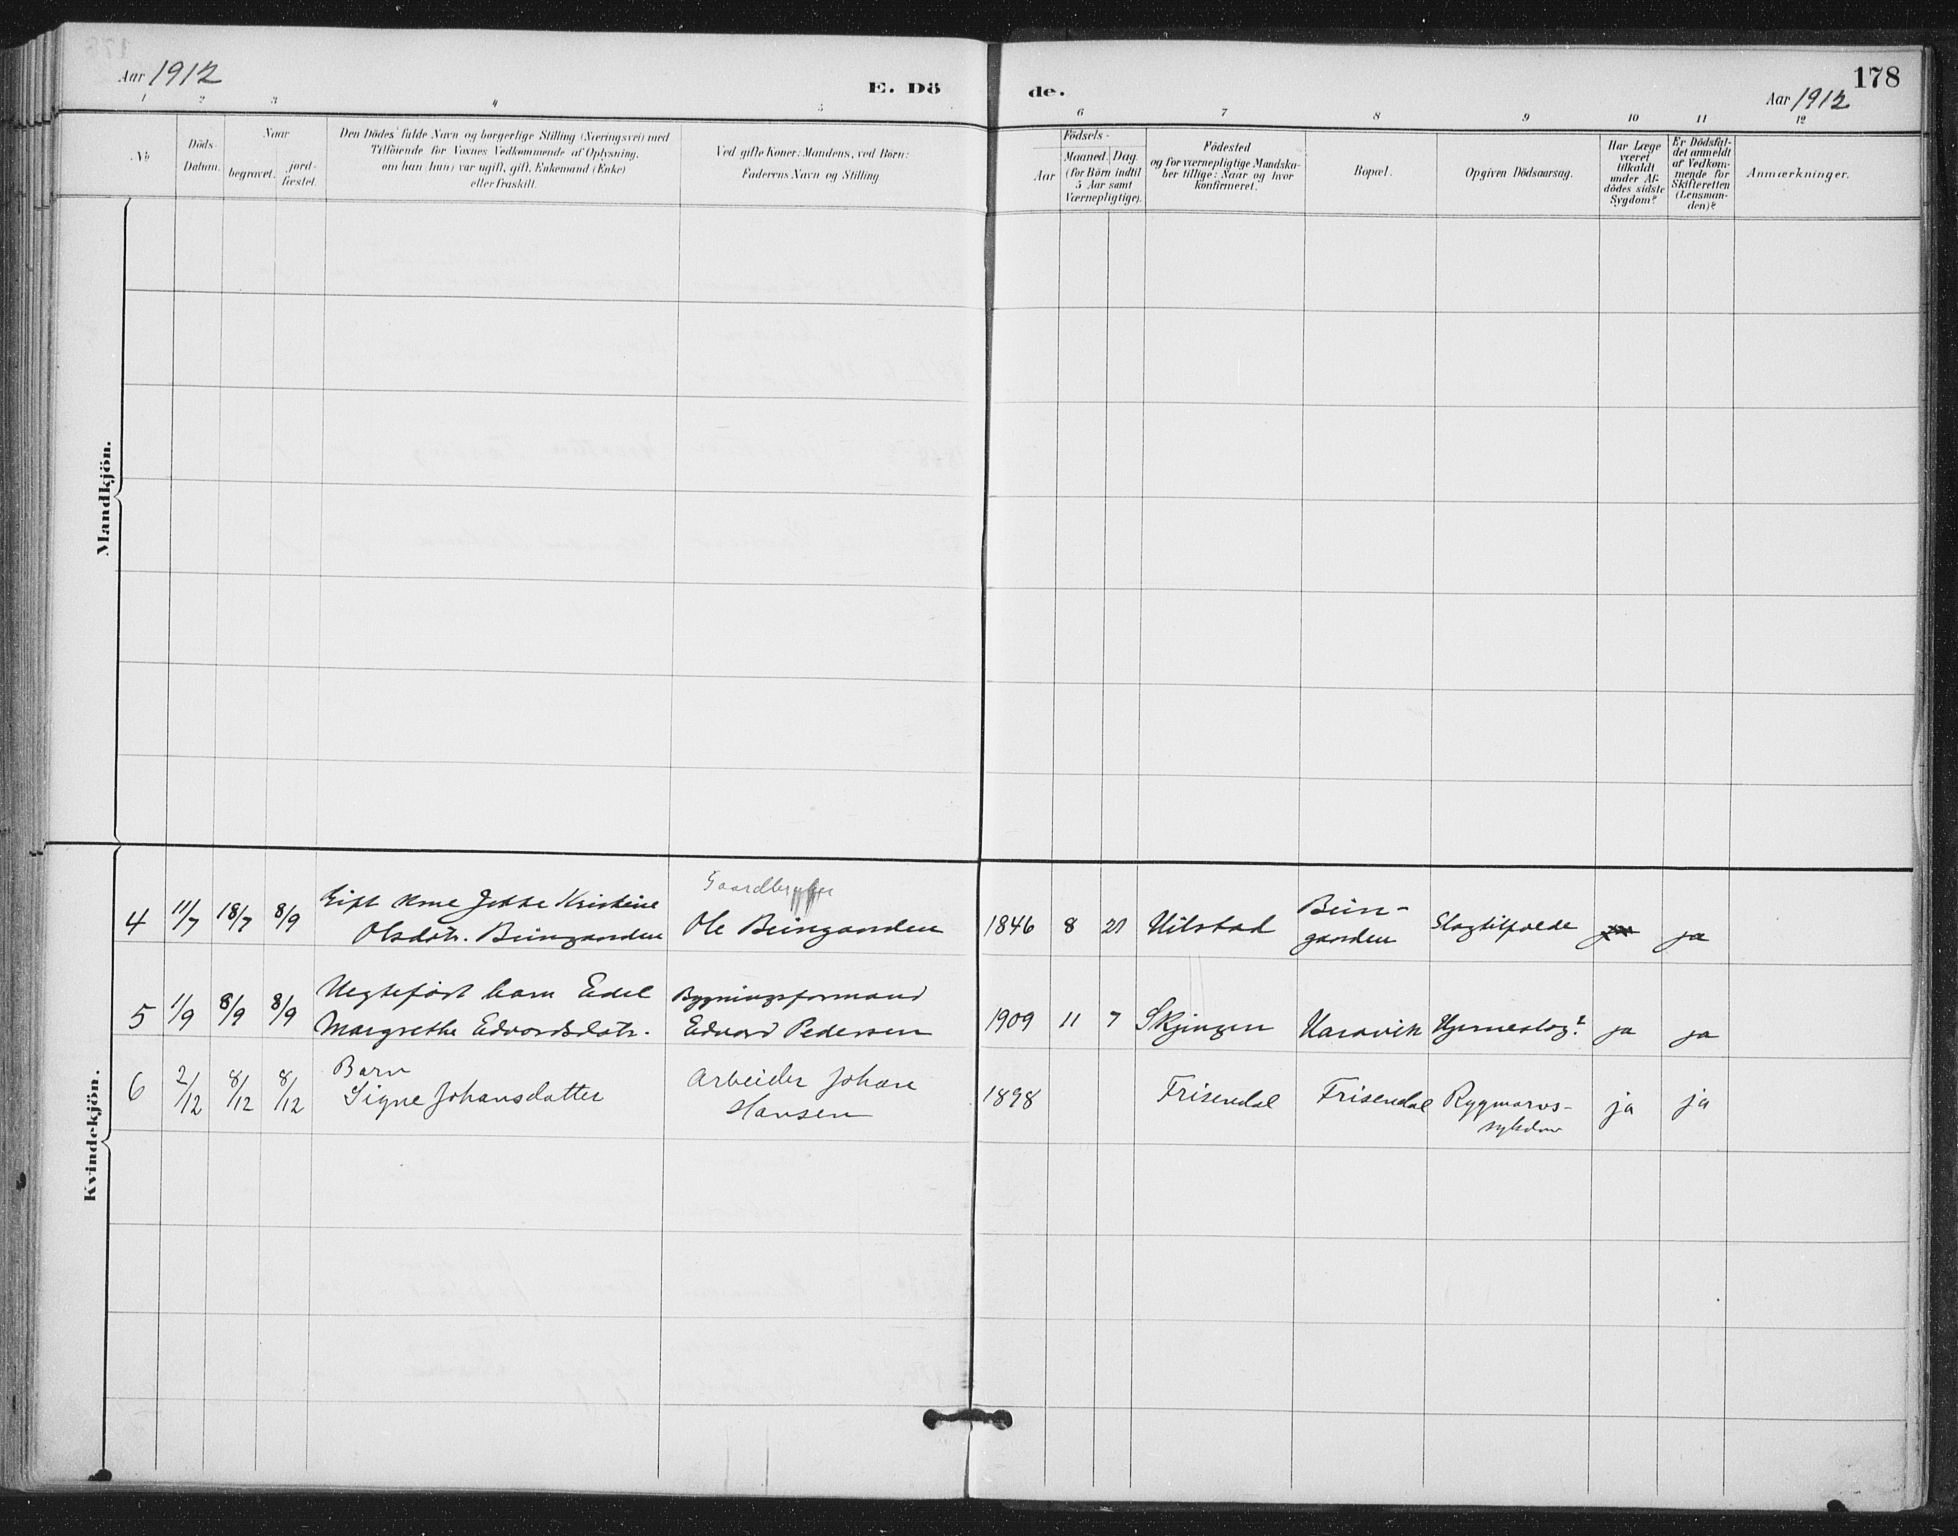 178
Aar 1912
E. Dö
de.
Aar 1912
1 2 3 4 5 6 7 8 9 10 11 12
No
Döds Datum.
Naar
begravet.
jordfæstet.
Den Dödes fulde Navn og borgerlige Stilling (Næringsvei) med
Tilföiende for Voxnes Vedkommende af Oplysning,
om han (hun) var ugift, gift, Enkemand (Enke)
eller fraskilt.
Ved gifte Koner: Mandens, ved Börn:
Faderens Navn og Stilling
Födsels-
Aar
Maaned. Dag.
(for Börn indtil
5 Aar samt
Værnepligtige).
Födested
og for værnepligtige Mandska-
ber tillige: Naar og hvor
konfirmeret.
Bopæl.
Opgiven Dödsaarsag.
Har Læge
været
tilkaldt
under Af-
dödes sidste
Sygdom?
Er Dödsfal-
det anmeldt
af Vedkom-
mende for
Skifteretten
(Lensman-
den)?
Anmærkninger.
Mandkjön.
Kvindekjön.
Gaardbruger
4 11/7 18/7 8/9 Gift kone Kristine Ole 1846 8 21 Hilstad Slagtilfælde ja
Olsdatr.
5 1/9 8/9 8/9 Uegteføst barn Edel Bygningsformand
Margrethe Edvardsdatr. Edvard Pedersen 1909 11 7 Skjingen ja ja
6 2/12 8/12 8/12 Barn
Signe Johansdatter Arbeider Johan 1898 Frisendal Frisendal Rygmarvs- ja ja
Hansen sykdom